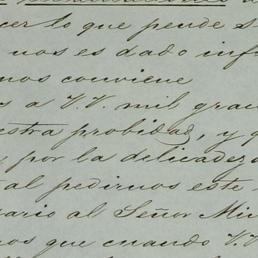 cer lo que pende s
nos es dado inf
nos conviene
s a V.V. mil grac
estra probidad, y q
por la delicadeza
al pedirnos este
ario al Señor Min
nos que cuando V.V.